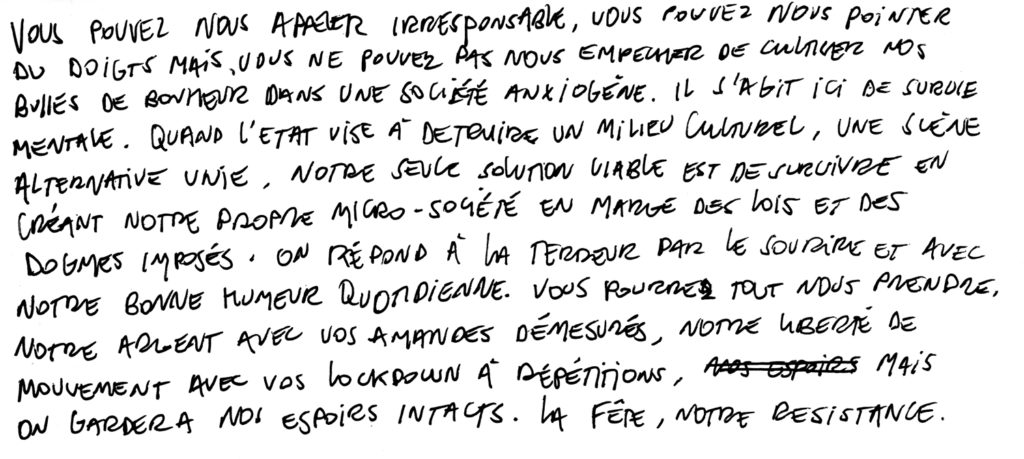 VOUS POUVEZ NOUS APPELER IRRESPONSABLE, VOUS POUVEZ NOUS POINTER
DU DOIGTS MAIS, VOUS NE POUVEZ PAS NOUS EMPECHER DE CULTIVER NOS
BULLES DE BONHEUR DANS UNE SOCIÉTÉ ANXIOGÈNE. IL S'AGIT ICI DE SURVIE
MENTALE. QUAND L'ETAT VISE À DETRUIRE UN MILIEU CULTUREL, UNE SCÈNE
ALTERNATIVE UNIE, NOTRE SEULE SOLUTION VIABLE EST DE SURVIVRE EN
CRÉANT NOTRE PROPRE MICRO-SOCIÉTÉ EN MARGE DES LOIS ET DES
DOGMES IMPOSÉS. ON RÉPOND À LA TERREUR PAR LE SOURIRE ET AVEC
NOTRE BONNE HUMEUR QUOTIDIENNE. VOUS POURREZ TOUT NOUS PRENDRE,
NOTRE ARGENT AVEC VOS AMANDES DÉMESURÉS, NOTRE LIBERTÉ DE
MOUVEMENT AVEC VOS LOCKDOWN À RÉPÉTITIONS, NOS ESPOIRS MAIS
ON GARDERA NOS ESPOIRS INTACTS. LA FÊTE, NOTRE RESISTANCE.